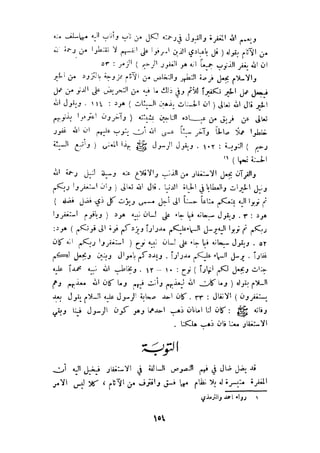 ويعمم الله المغفرة والقبول في رحمته لكل من أذنب وأناب اليه مهما سلف منه
من الآثام بقوله ( قل يا عبادي الذين اسرفوا على أنفسهم لا تقنطوا من رحمة
الله ان الله يغفر الذنوب جميعاً انه هو الغفور الرحيم ) الزمر : ٥٣
والاسلام يجعل فرصة التطهر والتخلص من الآثام ممزوجة بالتزود من الخير
فيجعل عمل الخير تكفيراً للأثم وفي ذلك ما فيه من التحريض على الندم من عمل
الشر قال الله تعالى ( ان الحسنات يذهبن السيئات ) هود : ١١٤ . ويقول الله
تعالى عن فريق من عباده التائبين ( وآخرون اعترفوا بذنوبهم
خلطوا عملا صالحاً وآخر سيئاً عسى الله أن يتوب عليهم ان الله غفور
رحيم ) التوبة : ١٠٢ . ويقول الرسول ﷺ بهذا المعنى ( وأتبع السيئة
الحسنة تمحها ) (١)
والقرآن يجعل الاستغفار من الذنب والاقلاع عنه وسيلة لنيل رحمة الله
ونيل الخيرات والعطايا في الحياة الدنيا . قال الله تعالى ( وان استغفروا ربكم
ثم توبوا اليه يمتعكم متاعاً حسناً الى أجل مسمى ويؤت كل ذي فضل فضله )
هود : ٣ . ويقول سبحانه فيما جاء على لسان نبيه هود ( وياقوم استغفروا
ربكم ثم توبوا اليه يرسل السماء عليكم مدراراً ويزدكم قوة الى قوتكم ) هود :
٥٢ . ويقول سبحانه فيما جاء على لسان نوح ( استغفروا ربكم انه كان
غفاراً . يرسل السماء عليكم مدراراً . ويمددكم بأموال وبنين ويجعل لكم
جنات ويجعل لكم أنهاراً ) نوح : ١٠ – ١٢ . ويخاطب الله نبيه محمداً عليه
السلام بقوله ( وما كان الله ليعذبهم وأنت فيهم وما كان الله معذبهم وهم
يستغفرون ) الانفال : ٣٣ . كان احد صحابة الرسول عليه السلام يقول بعد
وفاته ﷺ : كان لنا امانان ذهب احدهما وهو كون الرسول فينا وبقي
الاستغفار معنا فان ذهب هلكنا .
التوبة
قد يضل ضال في فهم النصوص السالفة في الاستغفار فيخيل اليه أن
المغفرة متيسرة له بلا نظام مهما فسق واقترف من الآثام ، كلا ليس الامر
١ رواه احمد والترمذي
١٥٤